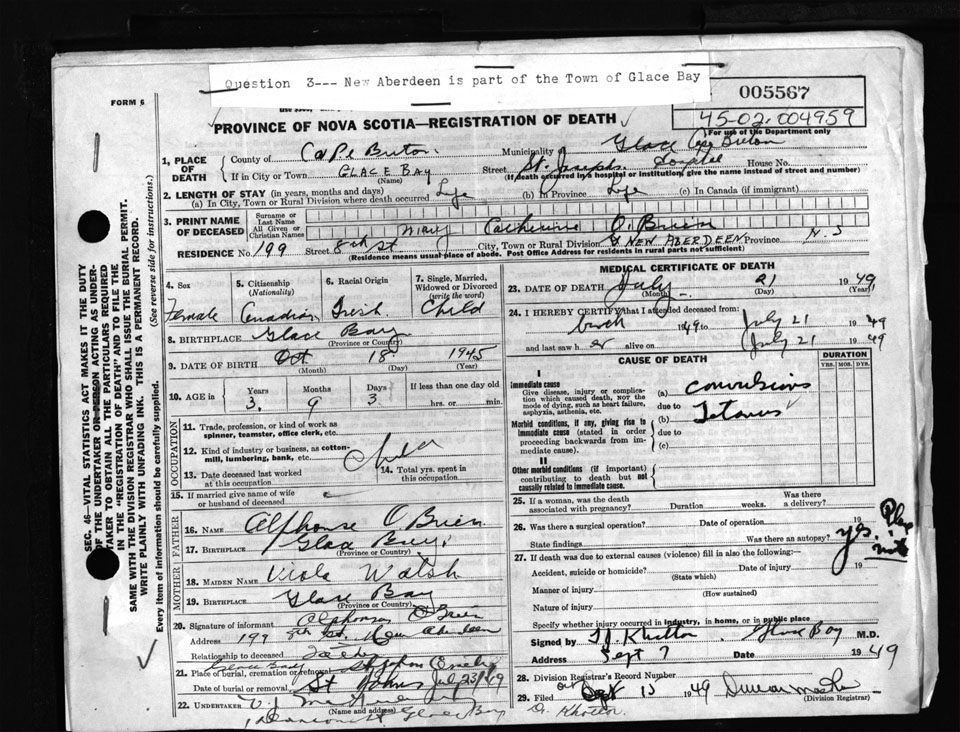 Question 3--- New Aberdeen is part of the Town of Glace Bay
FORM 6
005567
45-02-004959
For use of the Department only
PROVINCE OF NOVA SCOTIA—REGISTRATION OF DEATH
1. PLACE OF DEATH
County of Cape Breton
Municipality Glace Bay Cape Breton
If in City or Town GLACE BAY (Name)
Street St. Josephs Hospital House No.
(If death occurred in a hospital or institution, give the name instead of street and number)
2. LENGTH OF STAY (in years, months and days)
(a) In City, Town or Rural Division where death occurred Life (b) In Province Life (c) In Canada (if immigrant)
3. PRINT NAME OF DECEASED
Surname or Last Name
All Given or Christian Names Mary Catherine O'Brien
RESIDENCE No. 199 Street 8th St City, Town or Rural Division NEW ABERDEEN Province N.S
(Residence means usual place of abode. Post Office Address for residents in rural parts not sufficient)
4. Sex Female
5. Citizenship (Nationality) Canadian
6. Racial Origin Irish
7. Single, Married, Widowed or Divorced (write the word) Child
8. BIRTHPLACE Glace Bay (Province or Country)
9. DATE OF BIRTH Oct (Month) 18 (Day) 1945 (Year)
10. AGE in Years 3 Months 9 Days 3 If less than one day old hrs. or min.
OCCUPATION
11. Trade, profession, or kind of work as spinner, teamster, office clerk, etc.
12. Kind of industry or business, as cotton-mill, lumbering, bank, etc. Child
13. Date deceased last worked at this occupation
14. Total yrs. spent in this occupation
15. If married give name of wife or husband of deceased
FATHER
16. NAME Alphonse O'Brien
17. BIRTHPLACE Glace Bay (Province or Country)
MOTHER
18. MAIDEN NAME Viola Walsh
19. BIRTHPLACE Glace Bay (Province or Country)
20. Signature of informant Alphonse O'Brien
Address 199 8th St. New Aberdeen
Relationship to deceased Father
21. Place of burial, cremation or removal Glace Bay
Date of burial or removal St Johns July 23/49
22. UNDERTAKER V.J.
(Name and address) Glace Bay
MEDICAL CERTIFICATE OF DEATH
23. DATE OF DEATH July (Month) 21 (Day) 1949 (Year)
24. I HEREBY CERTIFY that I attended deceased from:
birth 1949 to July 21 1949
and last saw her alive on July 21 1949
CAUSE OF DEATH
DURATION
YRS. MOS. DYS.
I
Immediate cause
Give disease, injury or complication which caused death, NOT the mode of dying, such as heart failure, asphyxia, asthenia, etc.
(a) convulsions
due to
(b) Tetanus
Morbid conditions, if any, giving rise to immediate cause (stated in order proceeding backwards from immediate cause).
due to
(c)
II
Other morbid conditions (if important) contributing to death but not causally related to immediate cause.
25. If a woman, was the death associated with pregnancy? Duration weeks. Was there a delivery?
26. Was there a surgical operation? Date of operation 19
State findings Was there an autopsy? yes.
27. If death was due to external causes (violence) fill in also the following:—
Accident, suicide or homicide? (State which) Date of injury 19
Manner of injury (How sustained)
Nature of injury
Specify whether injury occurred in industry, in home, or in public place
Signed by Glace Bay M.D.
Address Sept 7 Date 1949
28. Division Registrar's Record Number
29. Filed 13 1949 (Division Registrar)
SEC. 46—VITAL STATISTICS ACT MAKES IT THE DUTY OF THE UNDERTAKER OR PERSON ACTING AS UNDERTAKER TO OBTAIN ALL THE PARTICULARS REQUIRED IN THE "REGISTRATION OF DEATH" AND TO FILE THE SAME WITH THE DIVISION REGISTRAR WHO SHALL ISSUE THE BURIAL PERMIT.
WRITE PLAINLY WITH UNFADING INK. THIS IS A PERMANENT RECORD.
Every item of information should be carefully supplied. (See reverse side for instructions.)